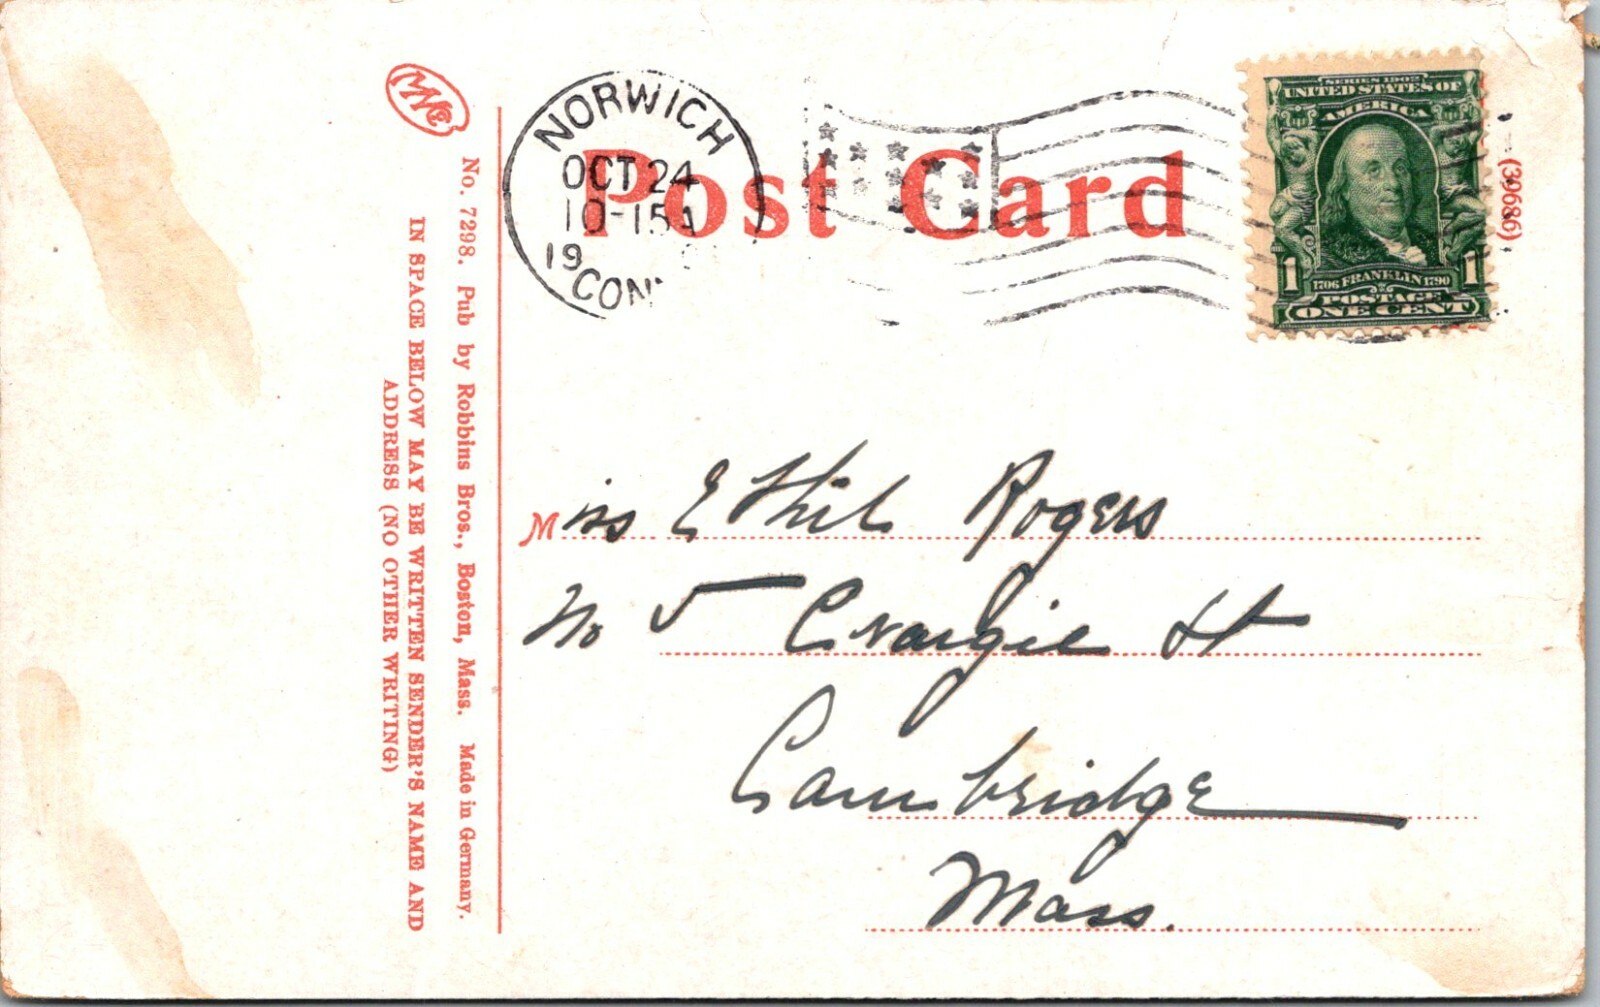 Post Card
NORWICH
OCT 24
10-15A
19
CONN
SERIES 1902
UNITED STATES OF
AMERICA
1 1
1706 FRANKLIN 1790
POSTAGE
ONE CENT
(30686)
No. 7298. Pub by Robbins Bros., Boston, Mass. Made in Germany.
IN SPACE BELOW MAY BE WRITTEN SENDER'S NAME AND
ADDRESS (NO OTHER WRITING)
Miss Ethil Rogers
No 5 Craigie St
Cambridge
Mass.